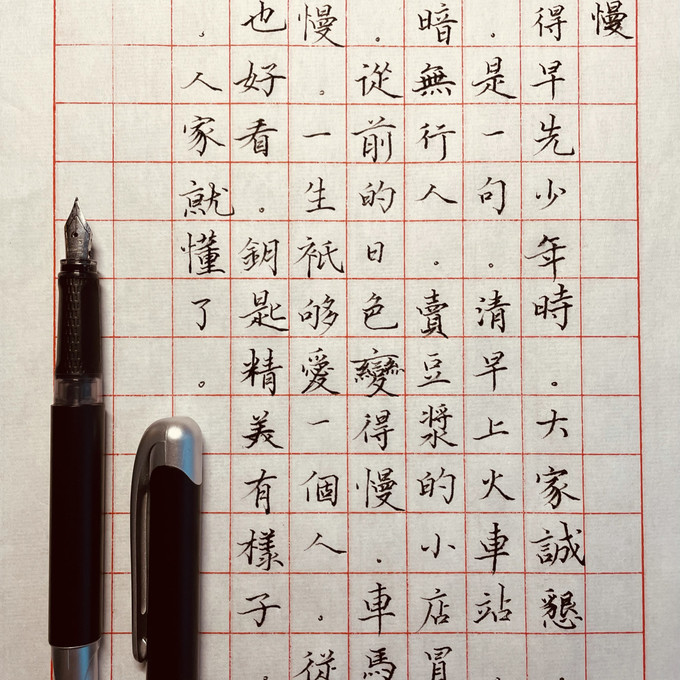 慢
得早先少年時。大家誠懇。
。是一句。清早上火車站。
暗無行人。賣豆漿的小店冒
。從前的日色變得慢。車馬
慢。一生衹够愛一個人。從
也好看。鈅匙精美有樣子。
。人家就懂了。